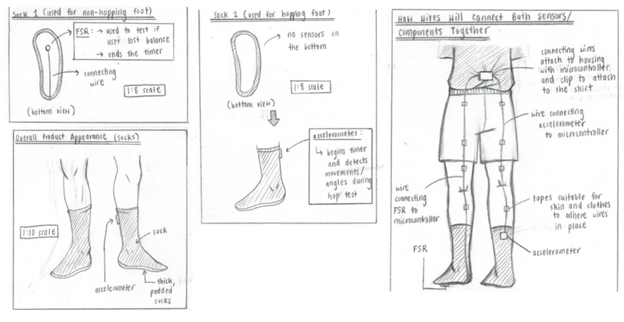 Sock 1 (used for non-hopping foot)
FSR: → used to test if
user lost balance
→ ends the timer
connecting
wire
1:8 scale
(bottom view)
Overall Product Appearance (socks)
1:10 scale
sock
accelerometer
thick,
padded
socks
Sock 1 (used for hopping foot)
no sensors on
the bottom
1:8 scale
(bottom view)
accelerometer:
↳ begins timer
and detects
movements/
angles during
hop test
How Wires Will Connect Both Sensors/
Components Together
connecting wires
attach to housing
with microcontroller
and clip to attach
to the shirt
wire connecting
accelerometer
to microcontroller
wire
connecting
FSR to
microcontroller
tapes suitable for
skin and clothes
to adhere wires
in place
accelerometer
FSR